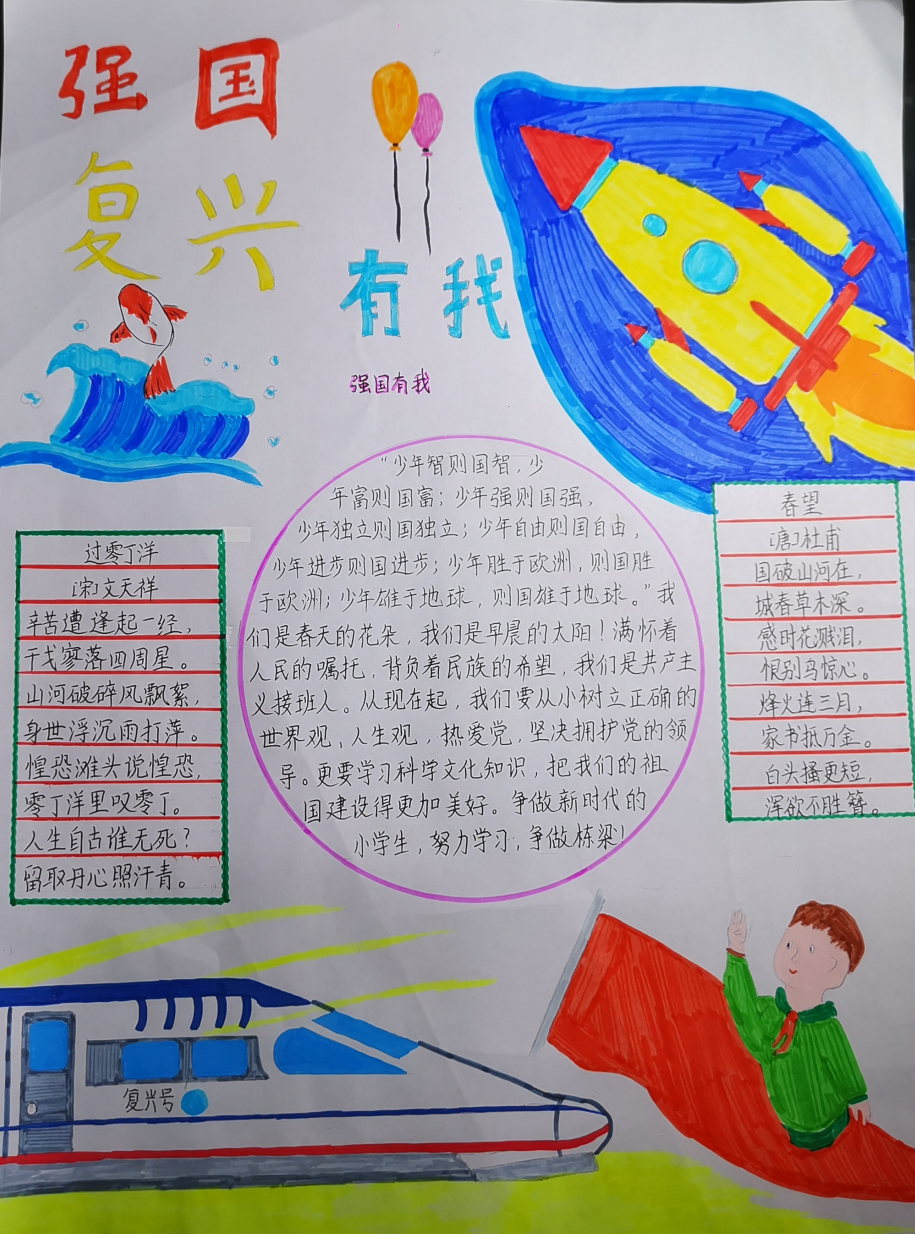 强国
复兴
有我
强国有我
过零丁洋
[宋]文天祥
辛苦遭逢起一经，
干戈寥落四周星。
山河破碎风飘絮，
身世浮沉雨打萍。
惶恐滩头说惶恐，
零丁洋里叹零丁。
人生自古谁无死？
留取丹心照汗青。
“少年智则国智，少
年富则国富；少年强则国强，
少年独立则国独立；少年自由则国自由，
少年进步则国进步；少年胜于欧洲，则国胜
于欧洲；少年雄于地球，则国雄于地球。”我
们是春天的花朵，我们是早晨的太阳！满怀着
人民的嘱托，背负着民族的希望，我们是共产主
义接班人。从现在起，我们要从小树立正确的
世界观、人生观，热爱党，坚决拥护党的领
导。更要学习科学文化知识，把我们的祖
国建设得更加美好。争做新时代的
小学生，努力学习，争做栋梁！
春望
[唐]杜甫
国破山河在，
城春草木深。
感时花溅泪，
恨别鸟惊心。
烽火连三月，
家书抵万金。
白头搔更短，
浑欲不胜簪。
复兴号